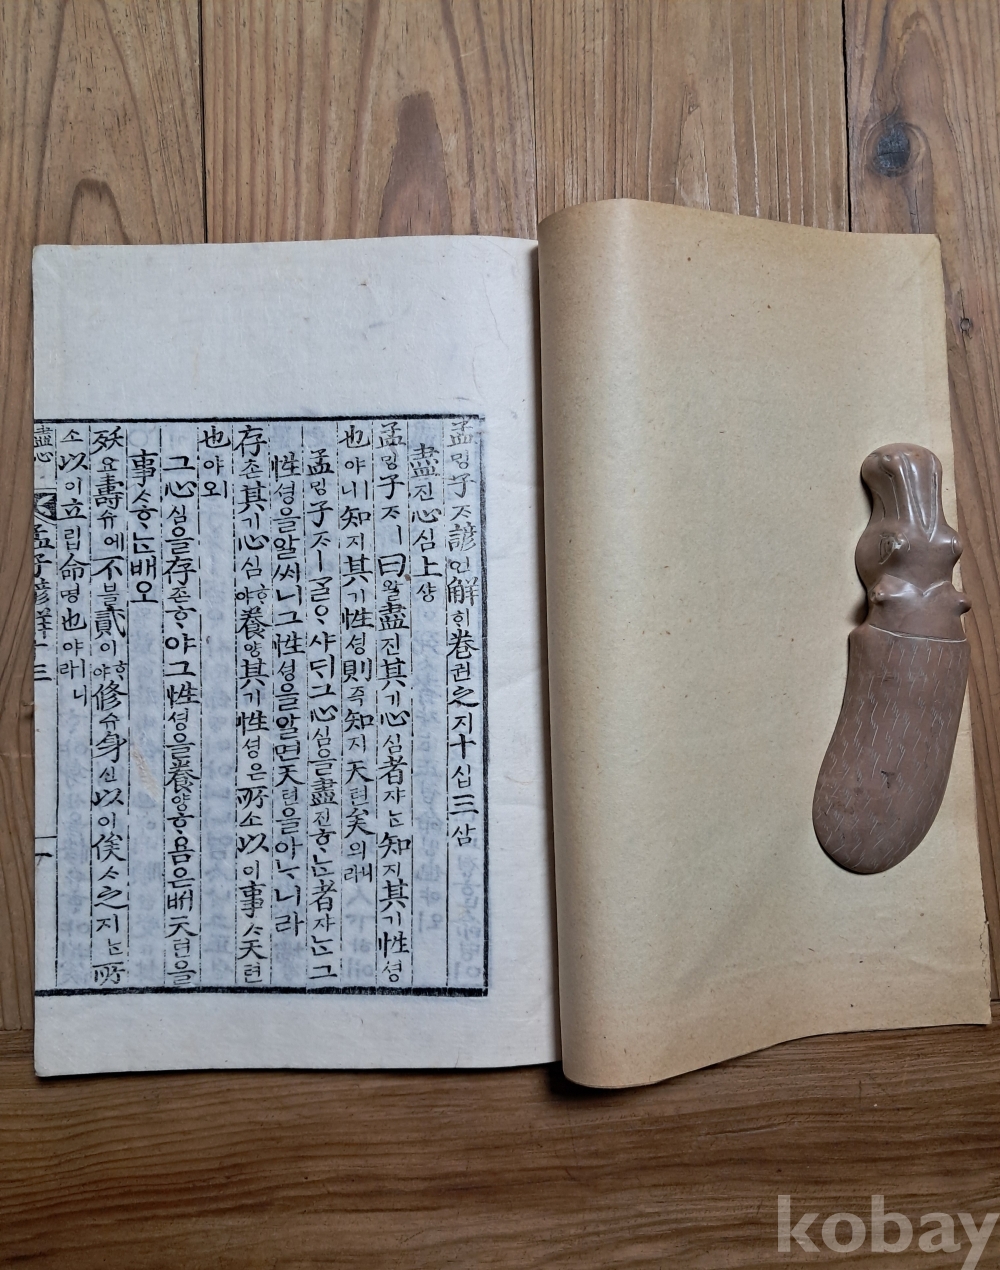 孟ᄆᆡᆼ子ᄌᆞ諺언解ᄒᆡ卷권之지十십三삼
盡진心심上샹
孟ᄆᆡᆼ子ᄌᆞㅣ曰왈盡진其기心심者쟈ᄂᆞᆫ知지其기性셩
也야ㅣ니知지其기性셩則즉知지天텬矣의라ㅣ니
孟ᄆᆡᆼ子ᄌᆞㅣᄀᆞᆯᄋᆞ샤ᄃᆡ그心심을盡진ᄒᆞᄂᆞᆫ者쟈ᄂᆞᆫ그
性셩을알ᄭᅵ니그性셩을알면天텬을아ᄂᆞ니라
存존其기心심ᄒᆞ야養양其기性셩은所소以이事ᄉᆞ天텬
也야오
그心심을存존ᄒᆞ야그性셩을養양ᄒᆞ욤은ᄡᅥ天텬을
事ᄉᆞᄒᆞᄂᆞᆫ배오
殀요壽슈에不블貳이ᄒᆞ야修슈身신以이俟ᄉᆞ之지ᄂᆞᆫ所
소以이立립命명也야라ㅣ니
盡心 孟子諺解十三 一
kobay